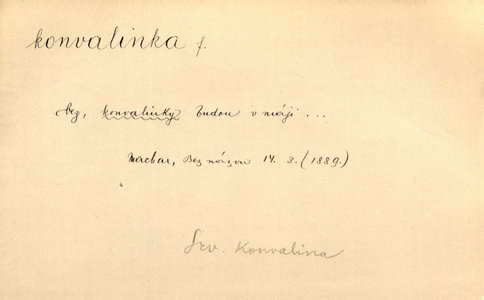 konvalinka f.
bez, konvalinky budou v máji ...
Machar, Bez názvu 14. 3. (1889.)
Srv. Konvalina